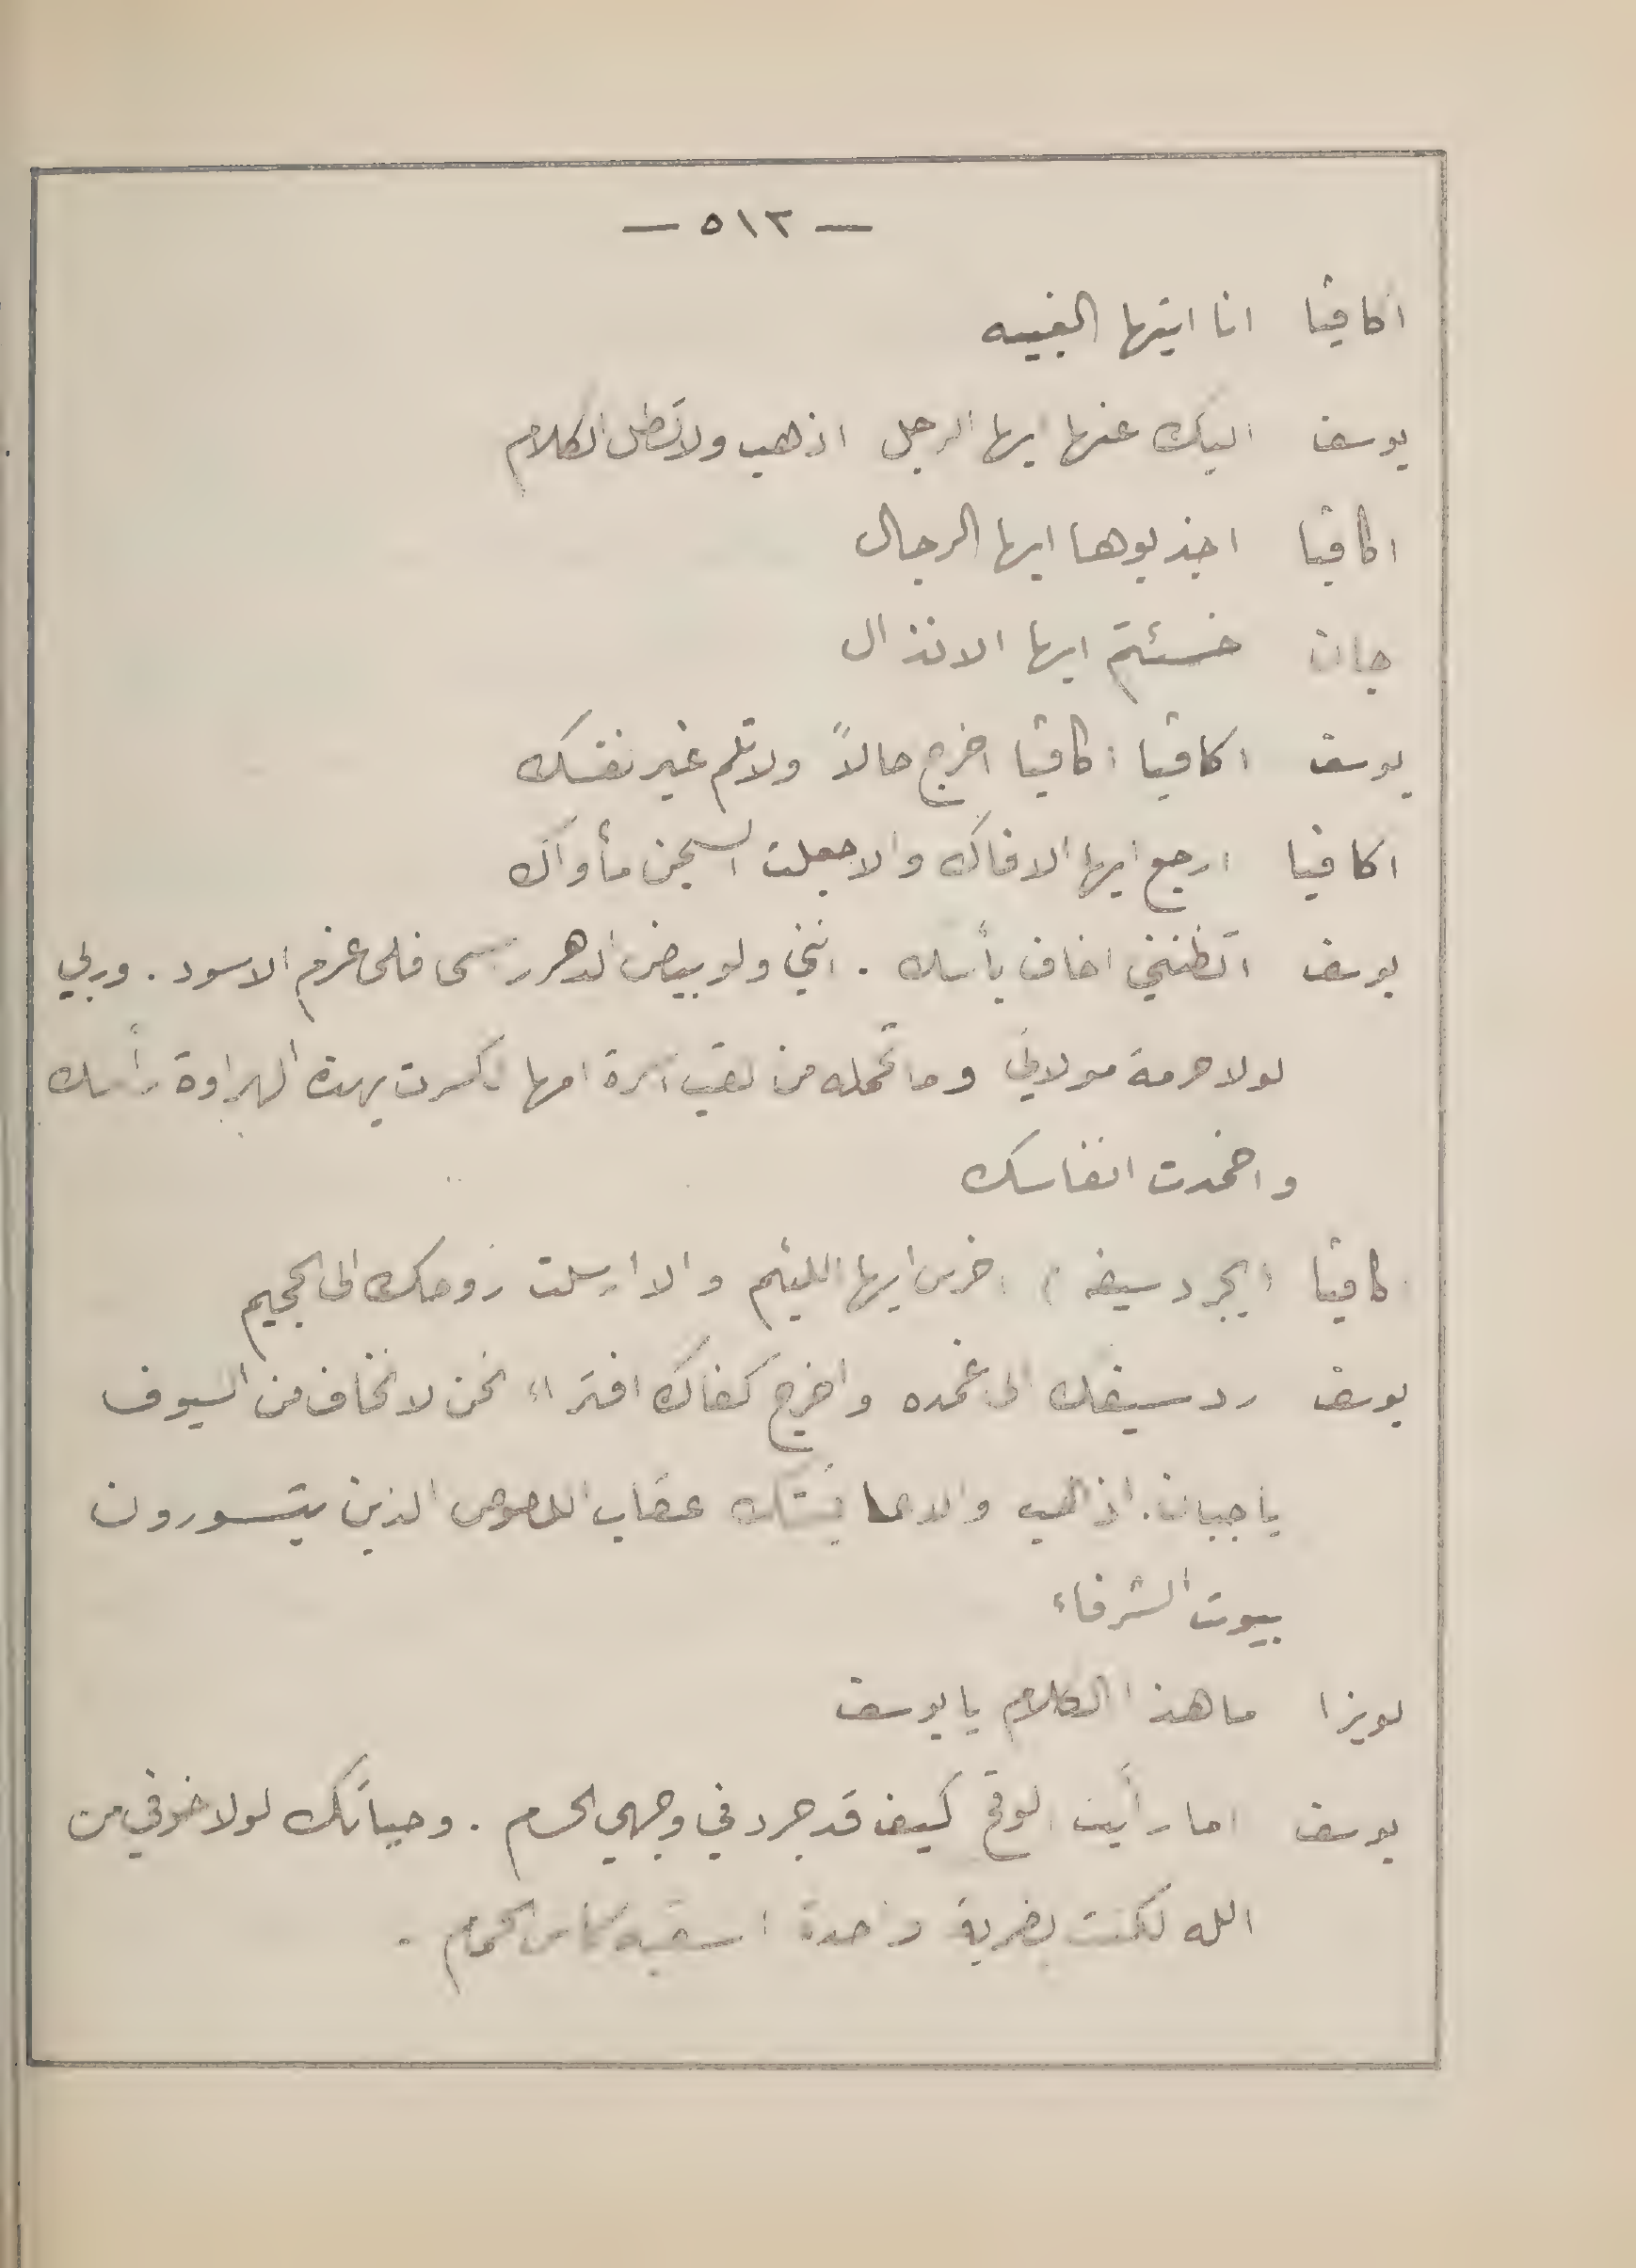 — ٥١٢ —
اكافيا انا ايتها الغبيه
يوسف اليك عنها ايها الرجل اذهب ولا تطل الكلام
اكافيا اجذبوها ايها الرجال
جان خسئتم ايها الانذال
يوسف اكافيا اكافيا اخرج حالاً ولا تلم غير نفسك
اكافيا ارجع ايها الافاك والا جعلت السجن مأواك
يوسف اتظنني اخاف بأسك . انني ولو بيض الدهر رسمى فلى عزم الاسود . وربي
لولا حرمة مولاتي وما تحمله من لقب اسرة امها لكسرت بهدة الهراوة رأسك
واخمدت انفاسك
اكافيا (يجرد سيفه) اخرس ايها اللئيم والا ارسلت روحك الى الجحيم
يوسف رد سيفك الى غمده واخرج كفاك افتراء نحن لا نخاف من السيوف
يا جبان . اذهب والا عاقبتك عقاب اللصوص الذين يتسورون
بيوت الشرفاء
لويزا ما هذا الكلام يا يوسف
يوسف اما رأيت الوقح كيف قد جرد في وجهي الحسام . وحياتك لولا خوفي من
الله لكنت بضربة واحدة اسقيه كأس الحمام .